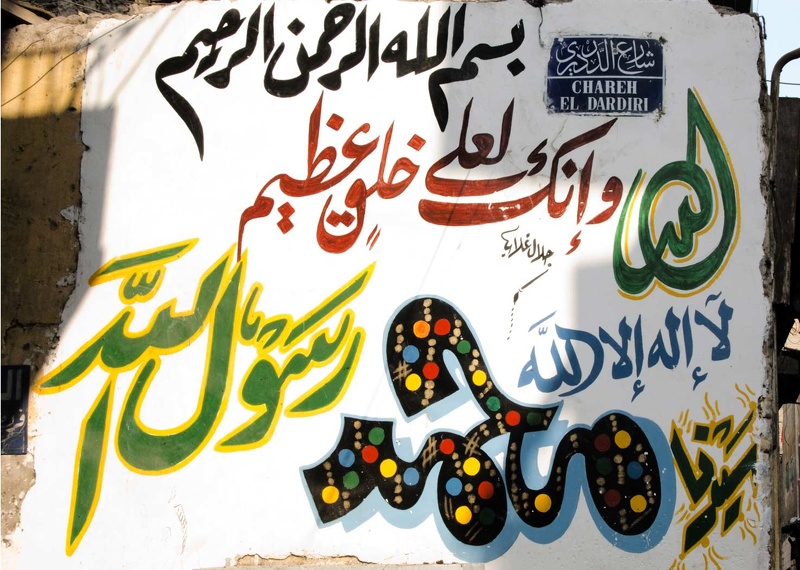 بسم الله الرحمن الرحيم
شارع الدرديري
CHAREH
EL DARDIRI
وإنك لعلى خلق عظيم
الله
لا إله إلا الله
سيدنا
محمد
رسول الله